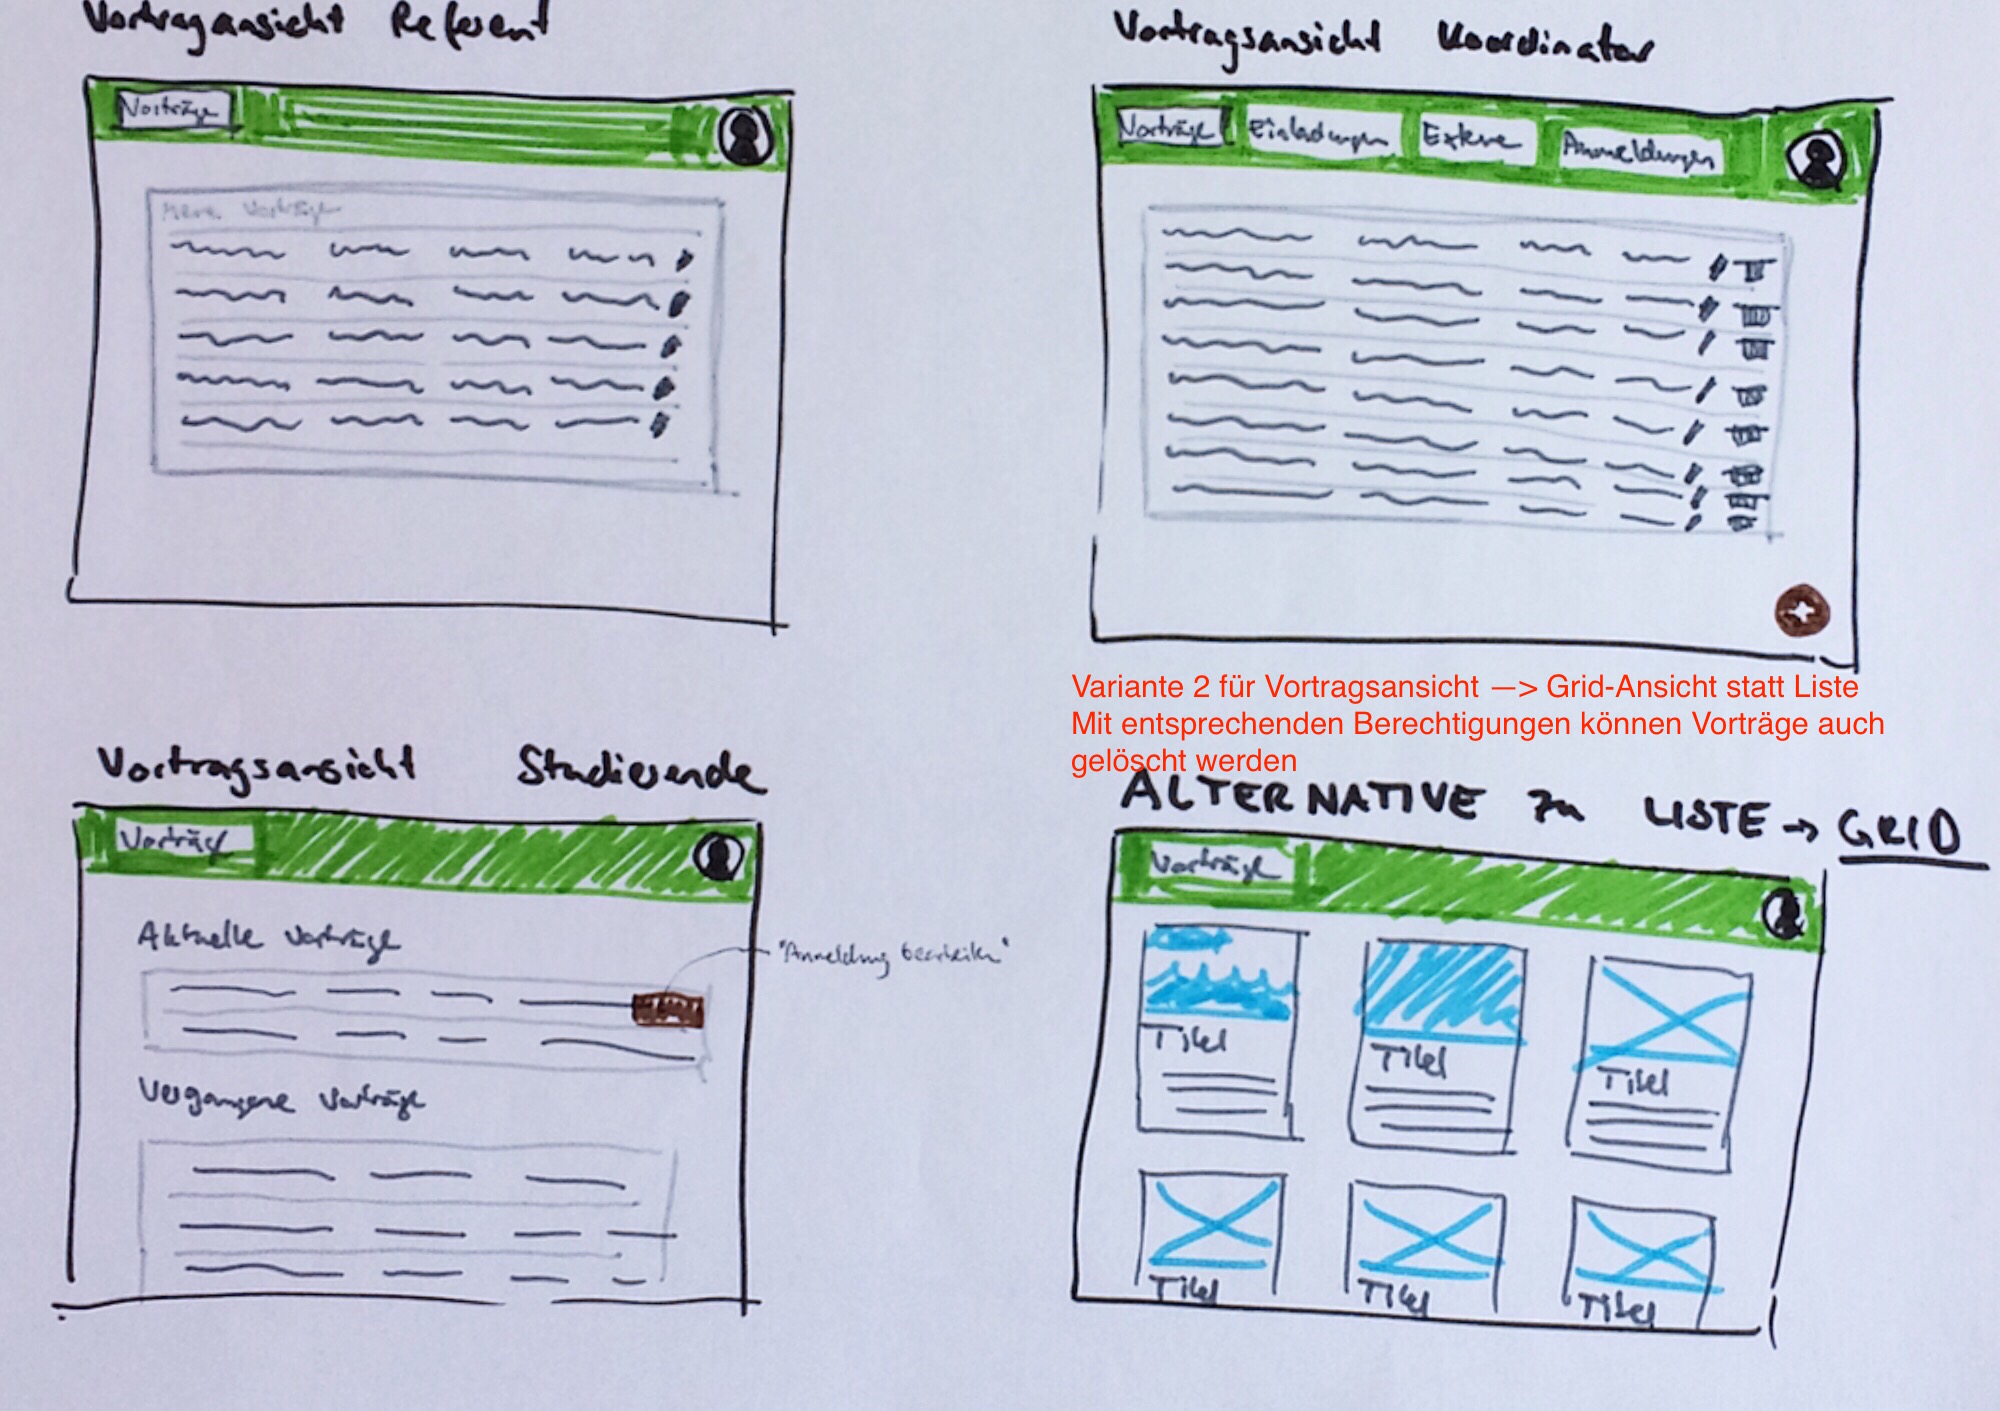 Vortragansicht Referent
Vorträge
Meine Vorträge
Vortragsansicht Koordinator
Vorträge
Einladungen
Externe
Anmeldungen
Variante 2 für Vortragsansicht —> Grid-Ansicht statt Liste
Mit entsprechenden Berechtigungen können Vorträge auch
gelöscht werden
Vortragsansicht Studierende
Vorträge
Aktuelle Vorträge
"Anmeldung bearbeiten"
Vergangene Vorträge
ALTERNATIVE zu LISTE → GRID
Vorträge
Titel
Titel
Titel
Titel
Titel
Titel